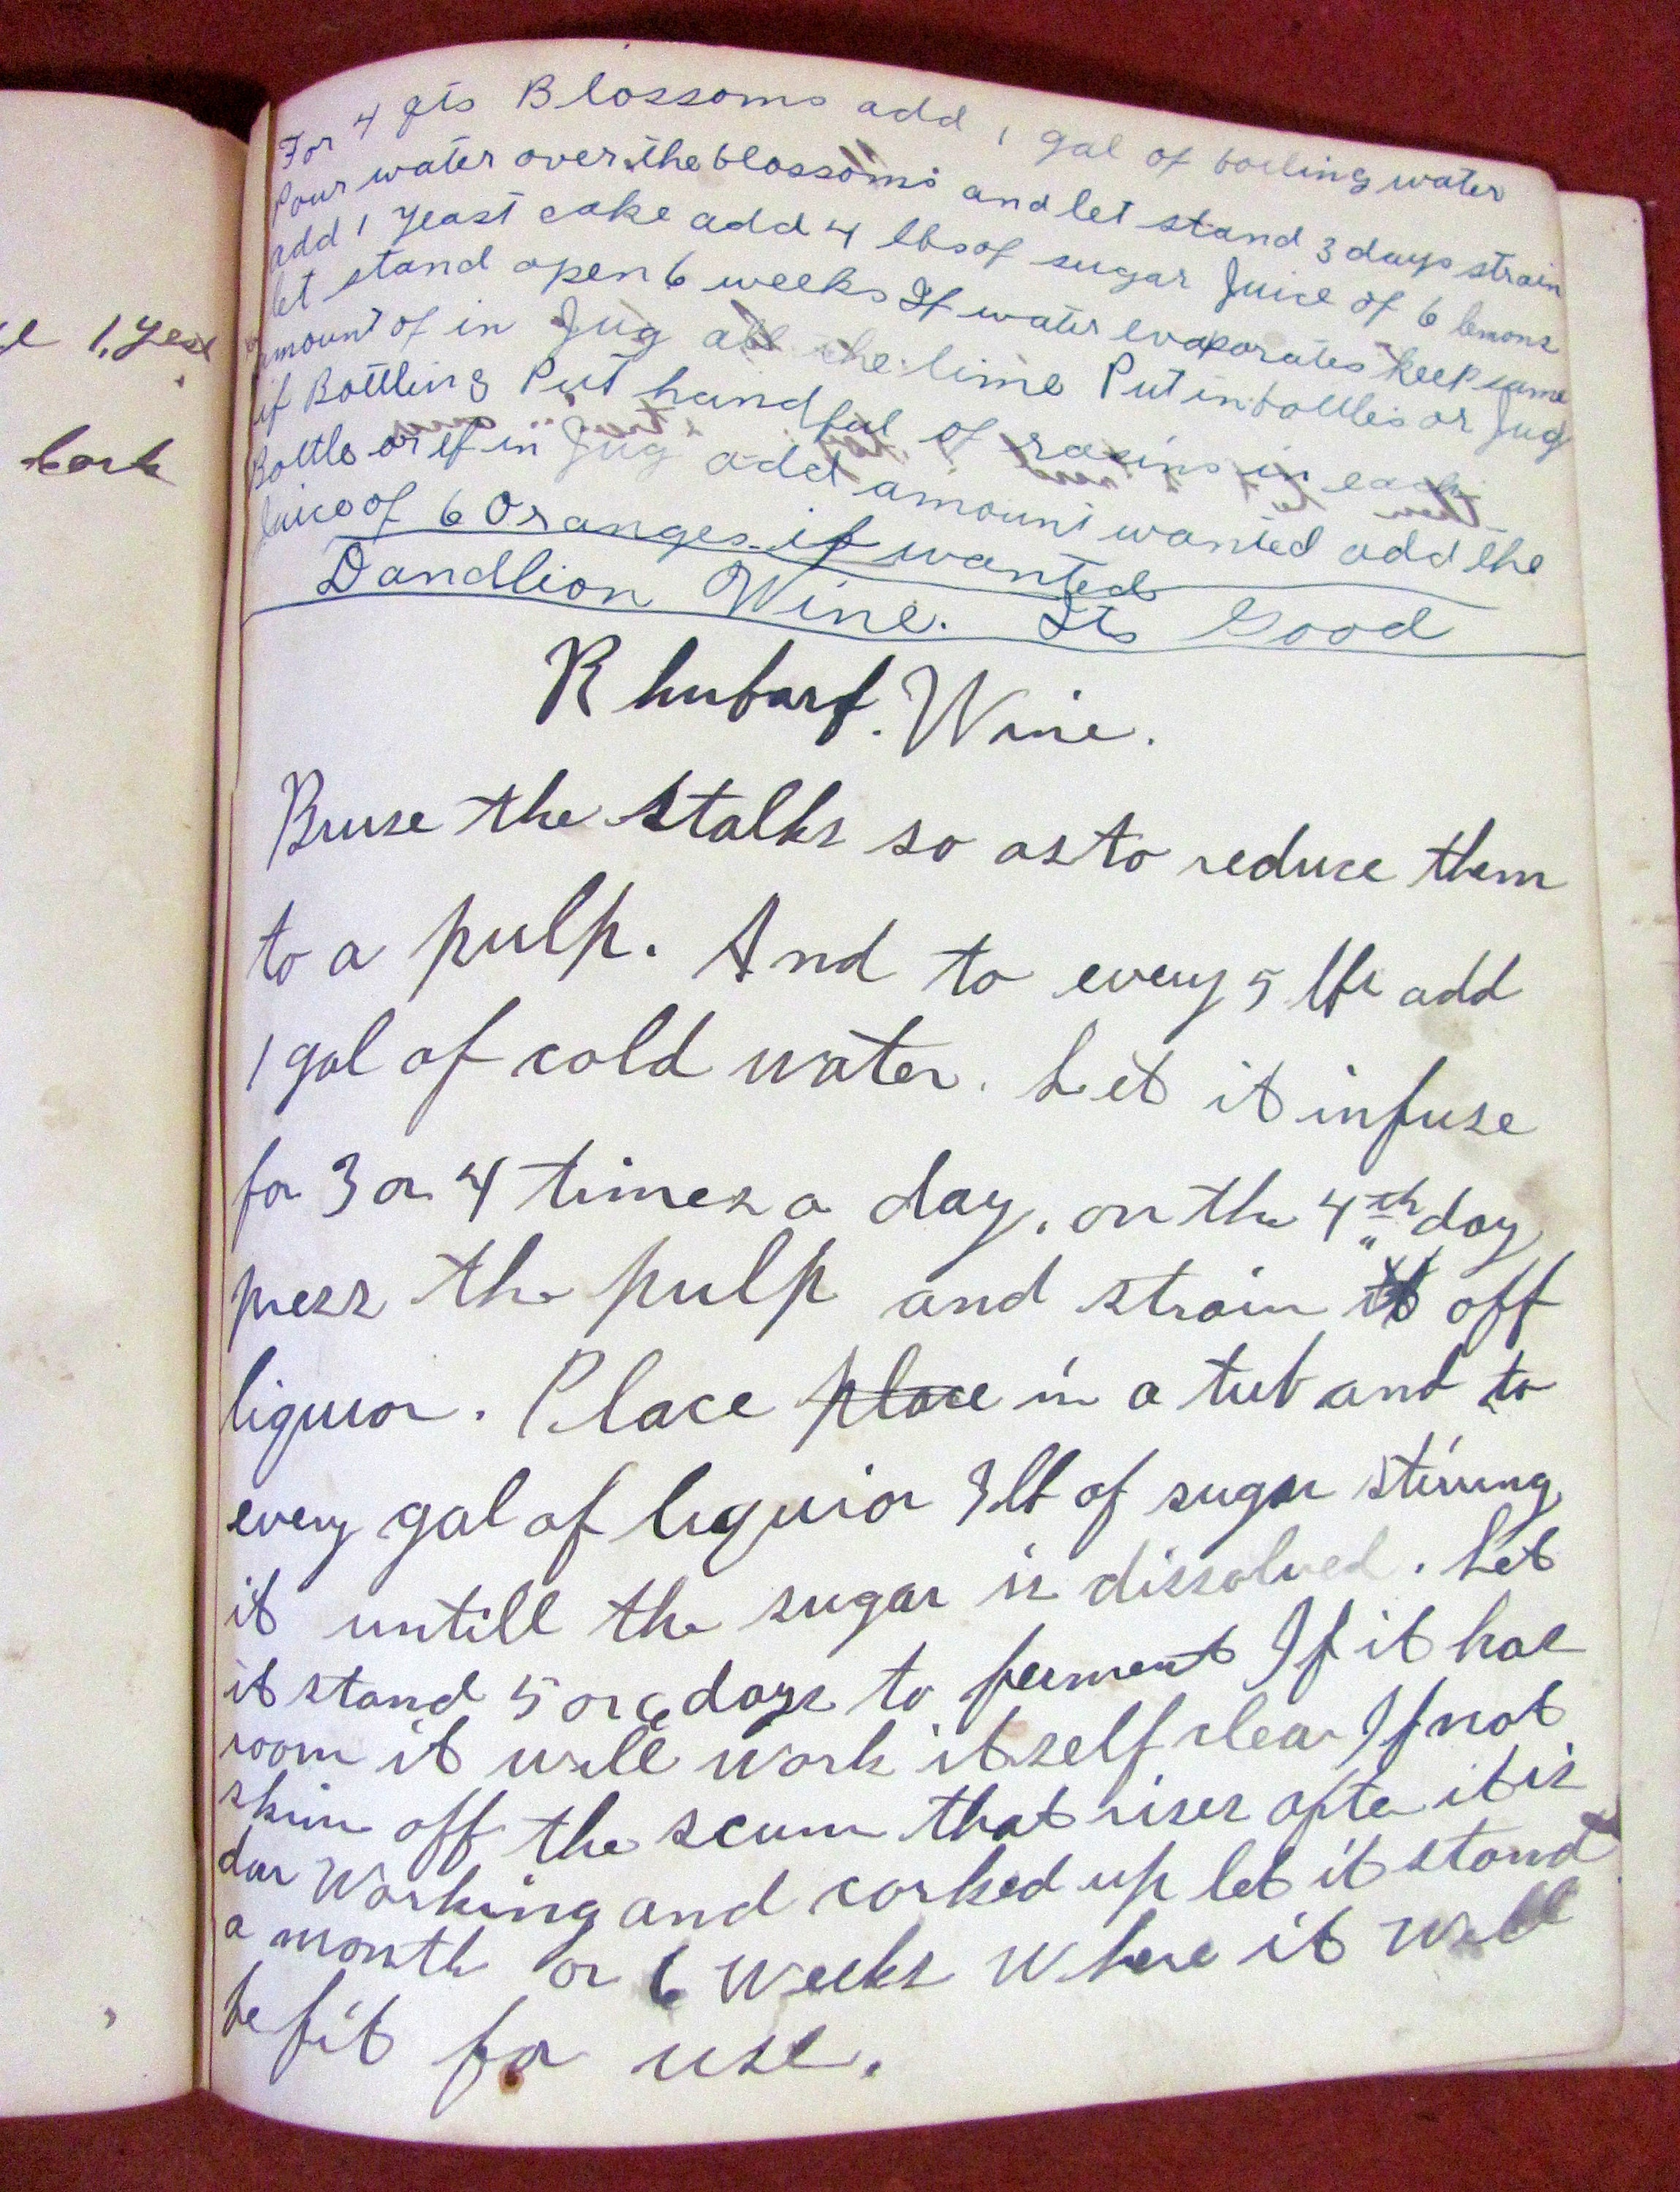 e 1, Yeast
cork
For 4 qts Blossoms add 1 gal of boiling water
Pour water over the blossoms and let stand 3 days strain
add 1 yeast cake add 4 lbs of sugar Juice of 6 lemons
let stand open 6 weeks If water evaporates keep same
amount of in Jug all the time Put in bottles or Jug
if Bottling Put handful of rasins in each
Bottle or if in Jug add amount wanted add the
Juice of 6 Oranges if wanted
Dandlion Wine. Its Good
Rhubarb. Wine.
Bruse the stalks so as to reduce them
to a pulp. And to every 5 lbs add
1 gal of cold water. Let it infuse
for 3 or 4 times a day, on the 4th day
press the pulp and strain it off
liquor. Place place in a tub and to
every gal of liquior 3 lb of sugar stiring
it untill the sugar is dissolved. Let
it stand 5 or 6 days to ferment If it has
room it will work itself clear If not
skim off the scum that rises after it is
clear Working and corked up let it stand
a month or 6 weeks Where it will
be fit for use.